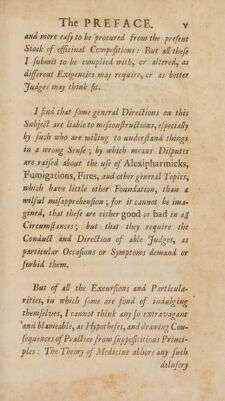 The PREFACE. v
and more eaſy to be procured from the preſent
Stock of officinal Compoſitions: But all theſe
I ſubmit to be complied with, or altered, as
different Exigencies may require, or as better
Judges may think fit.
I find that ſome general Directions on this
Subject are liable to miſconſtructions, eſpecially
by ſuch who are willing to underſtand things
in a wrong Senſe; by which means Diſputes
are raiſed about the uſe of Alexipharmicks,
Fumigations, Fires, and other general Topics,
which have little other Foundation, than a
wilful miſapprehenſion; for it cannot be ima-
gined, that theſe are either good or bad in all
Circumſtances; but that they require the
Conduct and Direction of able Judges, as
particular Occaſions or Symptoms demand or
forbid them.
But of all the Excurſions and Particula-
rities, in which ſome are fond of indulging
themſelves, I cannot think any ſo extravagant
and blameable, as Hypotheſes, and drawing Con-
ſequences of Practice from ſuppoſititious Princi-
ples: The Theory of Medicine abhors any ſuch
deluſory